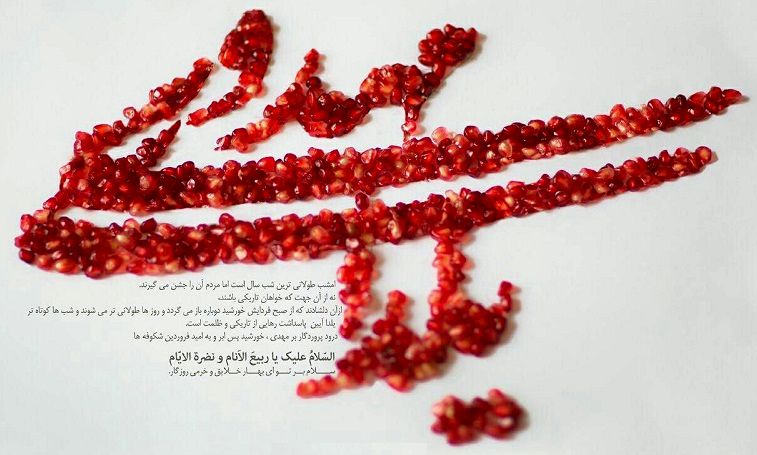 امشب طولانی ترین شب سال است اما مردم آن را جشن می گیرند.
نه از آن جهت که خواهان تاریکی باشند،
ازآن دلشادند که از صبح فردایش خورشید دوباره باز می گردد و روز ها طولانی تر می شوند و شب ها کوتاه تر
یلدا آیین پاسداشت رهایی از تاریکی و ظلمت است.
درود پروردگار بر مهدی ، خورشید پس ابر و به امید فروردین شکوفه ها
السّلامُ علیک یا ربیعَ الاَنام و نضرة الایّام
سلام بر تو ای بهار خلایق و خرمی روزگار.